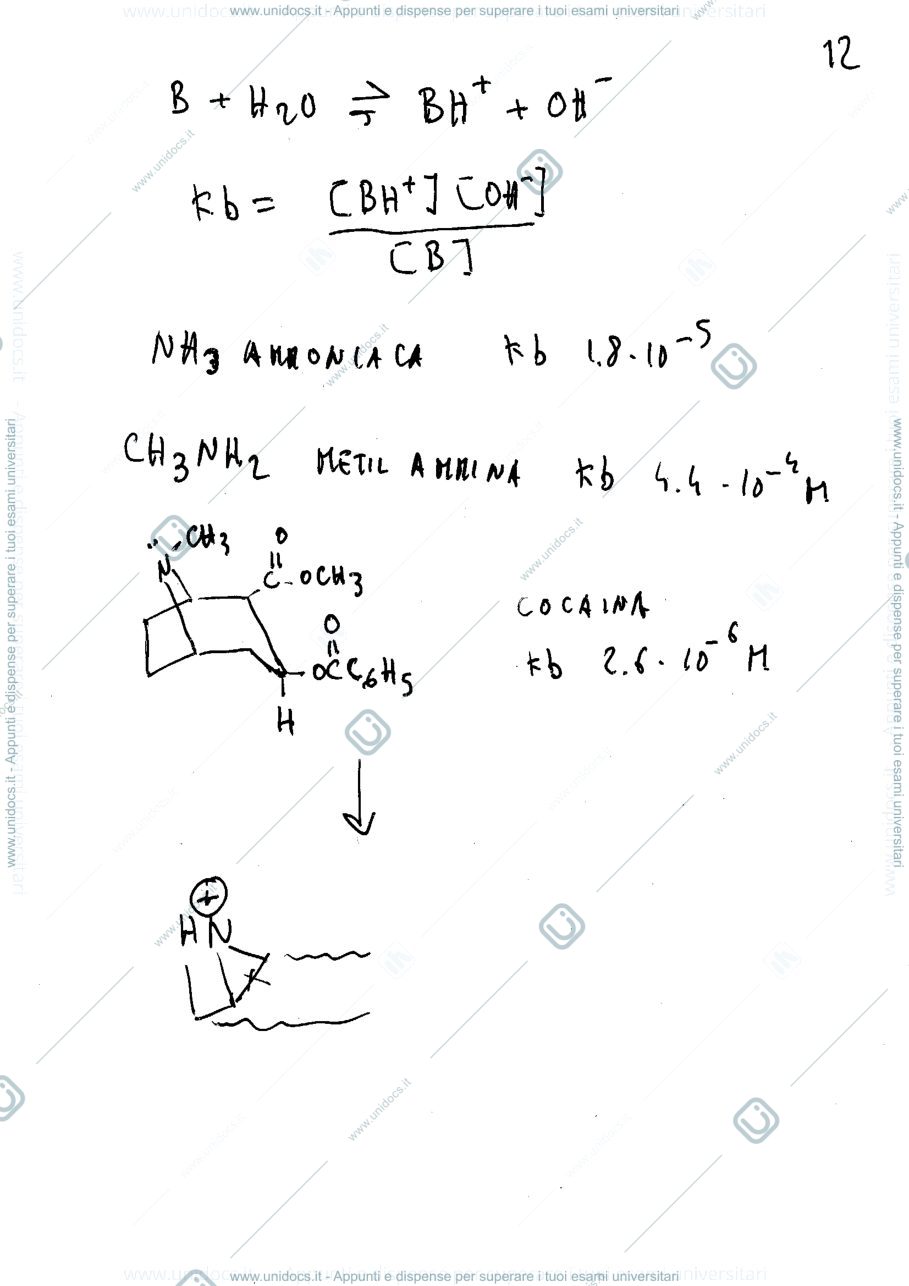 www.unidocs.it - Appunti e dispense per superare i tuoi esami universitari
12
B + H2O ⇌ BH+ + OH-
Kb = [BH+] [OH-]
[B]
NH3 AMMONIACA Kb 1.8·10-5
CH3NH2 METIL AMMINA Kb 4.4·10-4 M
N CH3
O
C-OCH3
O
OCC6H5
H
COCAINA
Kb 2.6·10-6 M
+
HN
www.unidocs.it - Appunti e dispense per superare i tuoi esami universitari
www.unidocs.it - Appunti e dispense per superare i tuoi esami universitari
www.unidocs.it - Appunti e dispense per superare i tuoi esami universitari
www.unidocs.it
www.unidocs.it
www.unidocs.it
www.unidocs.it
www.unidocs.it
www.unidocs.it